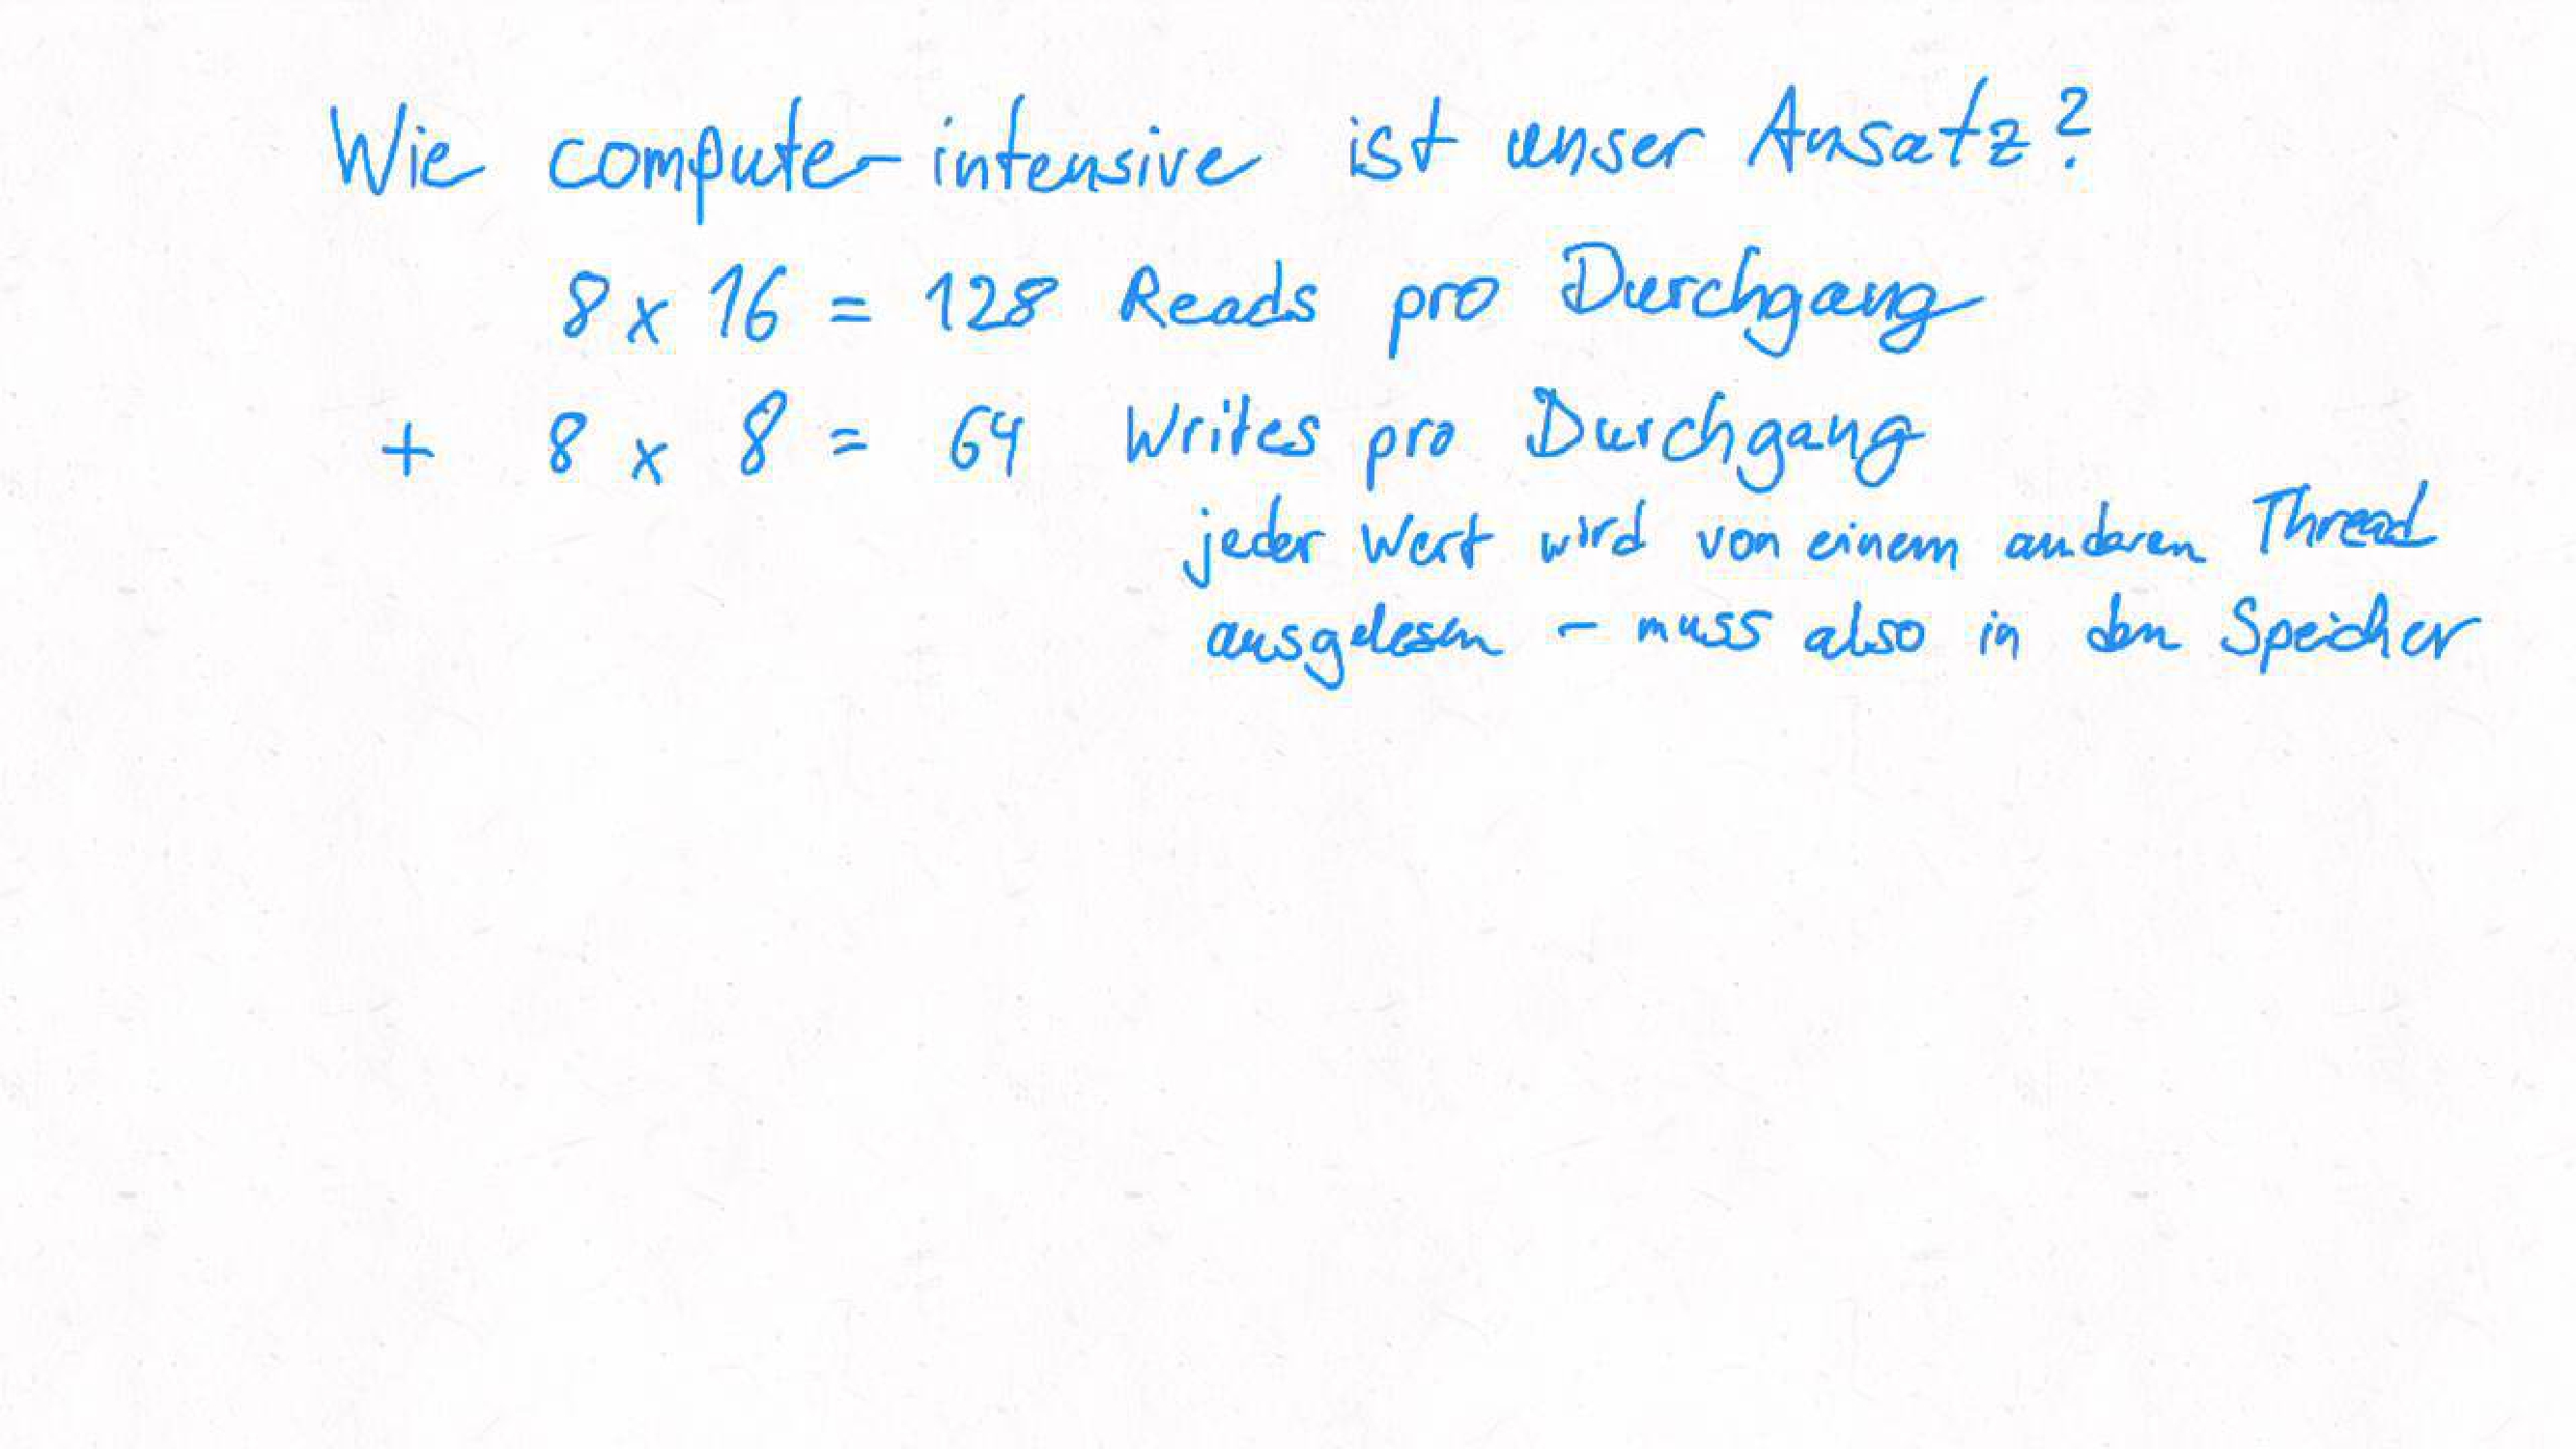 Wie compute-intensive ist unser Ansatz?
8 x 16 = 128 Reads pro Durchgang
+ 8 x 8 = 64 Writes pro Durchgang
jeder Wert wird von einem anderen Thread
ausgelesen - muss also in den Speicher